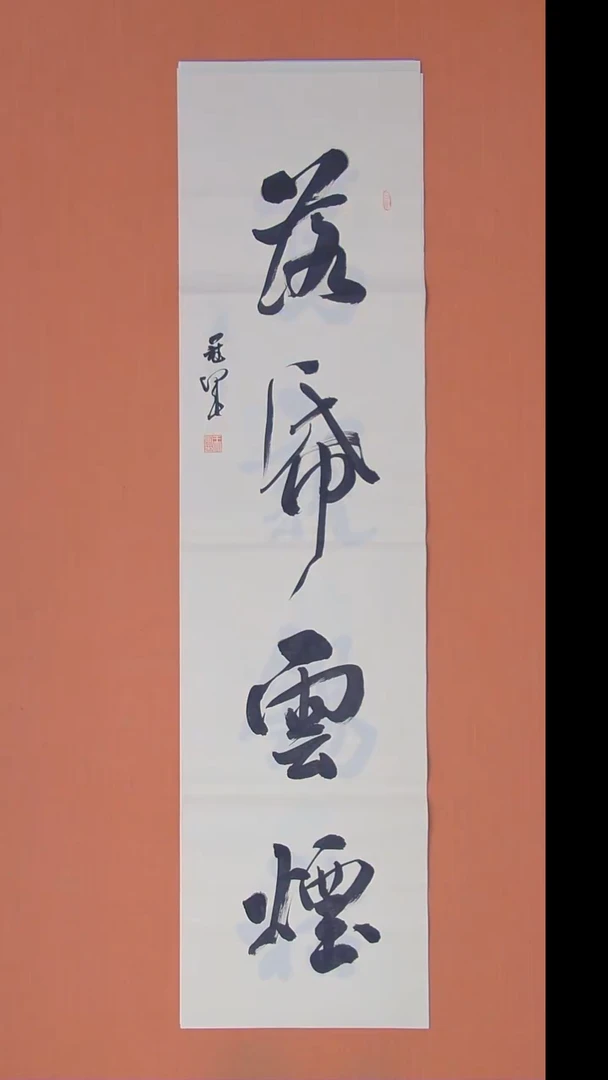 落紙雲煙